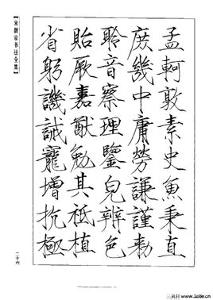 孟軻敦素史魚秉直
庶幾中庸勞謙謹勅
聆音察理鑒皃辨色
貽厥嘉猷勉其祗植
省躬譏誡寵增抗極
【宋徽宗书法全集】